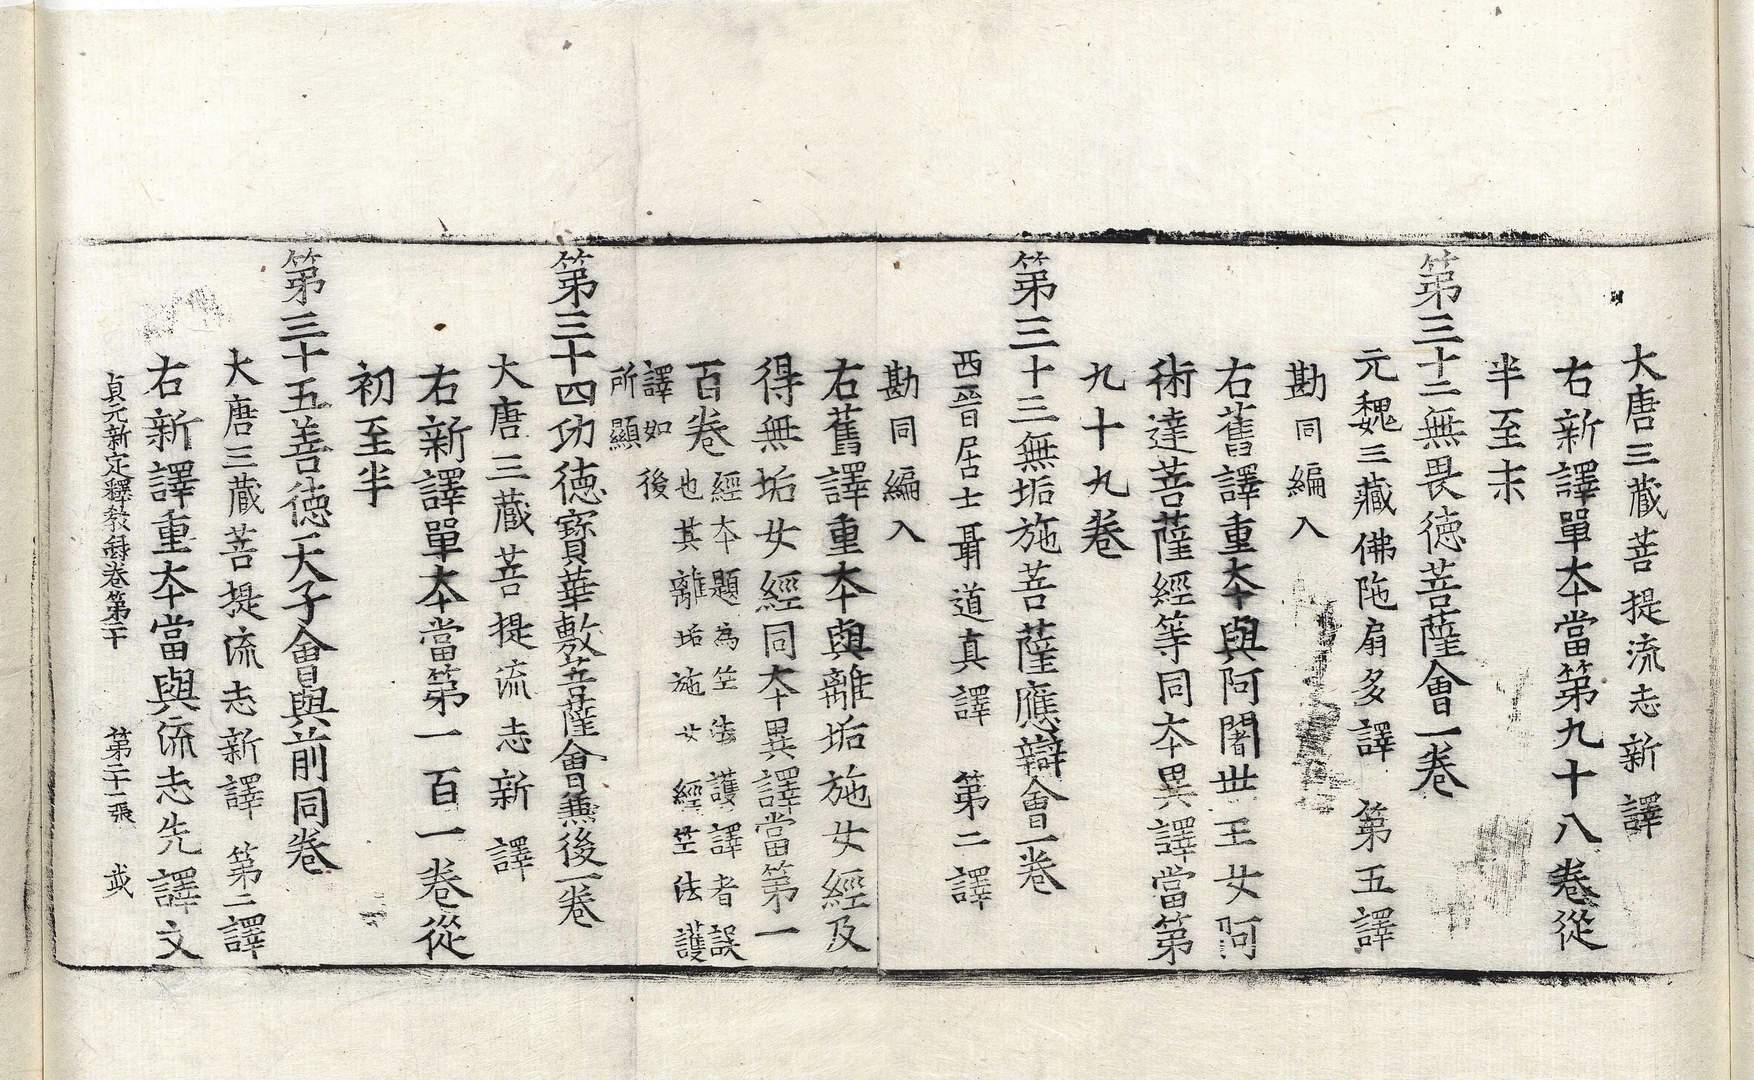 大唐三藏菩提流志新譯
右新譯單本當第九十八卷從
半至末
第三十二無畏德菩薩會一卷
元魏三藏佛陁扇多譯 第五譯
勘同編入
右舊譯重本與阿闍世王女阿
術達菩薩經等同本異譯當第
九十九卷
第三十三無垢施菩薩應辯會一卷
西晉居士聶道真譯 第二譯
勘同編入
右舊譯重本與離垢施女經及
得無垢女經同本異譯當第一
百卷 經本題為竺法護譯者誤
也其離垢施女經竺法護
譯如後
所顯
第三十四功德寶華敷菩薩會兼後一卷
大唐三藏菩提流志新譯
右新譯單本當第一百一卷從
初至半
第三十五善德天子會與前同卷
大唐三藏菩提流志新譯 第二譯
右新譯重本當與流志先譯文
貞元新定釋教錄卷第二十 第二十一張 㦯